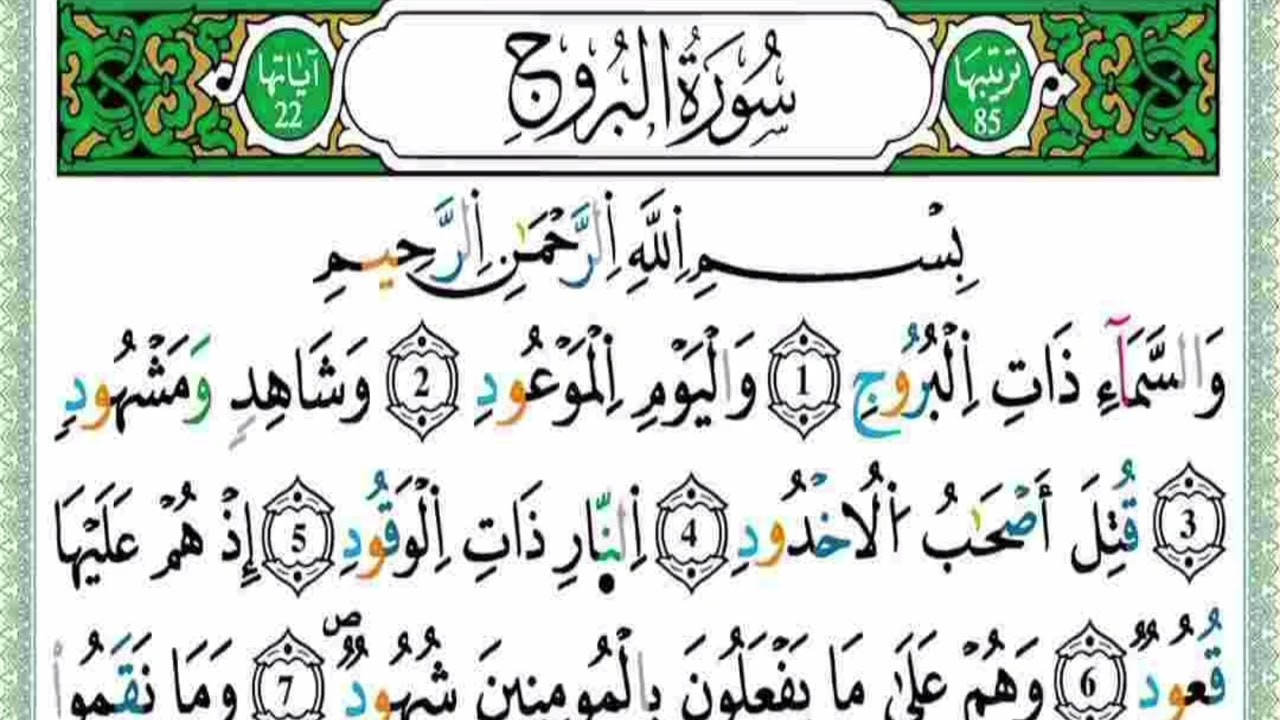 ترتيبها 85
سُورَةُ البُرُوجِ
آياتها 22
بِسْمِ اِللَّهِ اِلرَّحْمَٰنِ اِلرَّحِيمِ
وَالسَّمَآءِ ذَاتِ اِلْبُرُوجِ 1 وَالْيَوْمِ اِلْمَوْعُودِ 2 وَشَاهِدٍ وَمَشْهُودٍ
3 قُتِلَ أَصْحَٰبُ اُلُاخْدُودِ 4 اِلنّ۪ارِ ذَاتِ اِلْوَقُودِ 5 إِذْ هُمْ عَلَيْهَا
قُعُودٌ 6 وَهُمْ عَلَىٰ مَا يَفْعَلُونَ بِالْمُومِنِينَ شُهُودٌۖ 7 وَمَا نَقَمُواْ